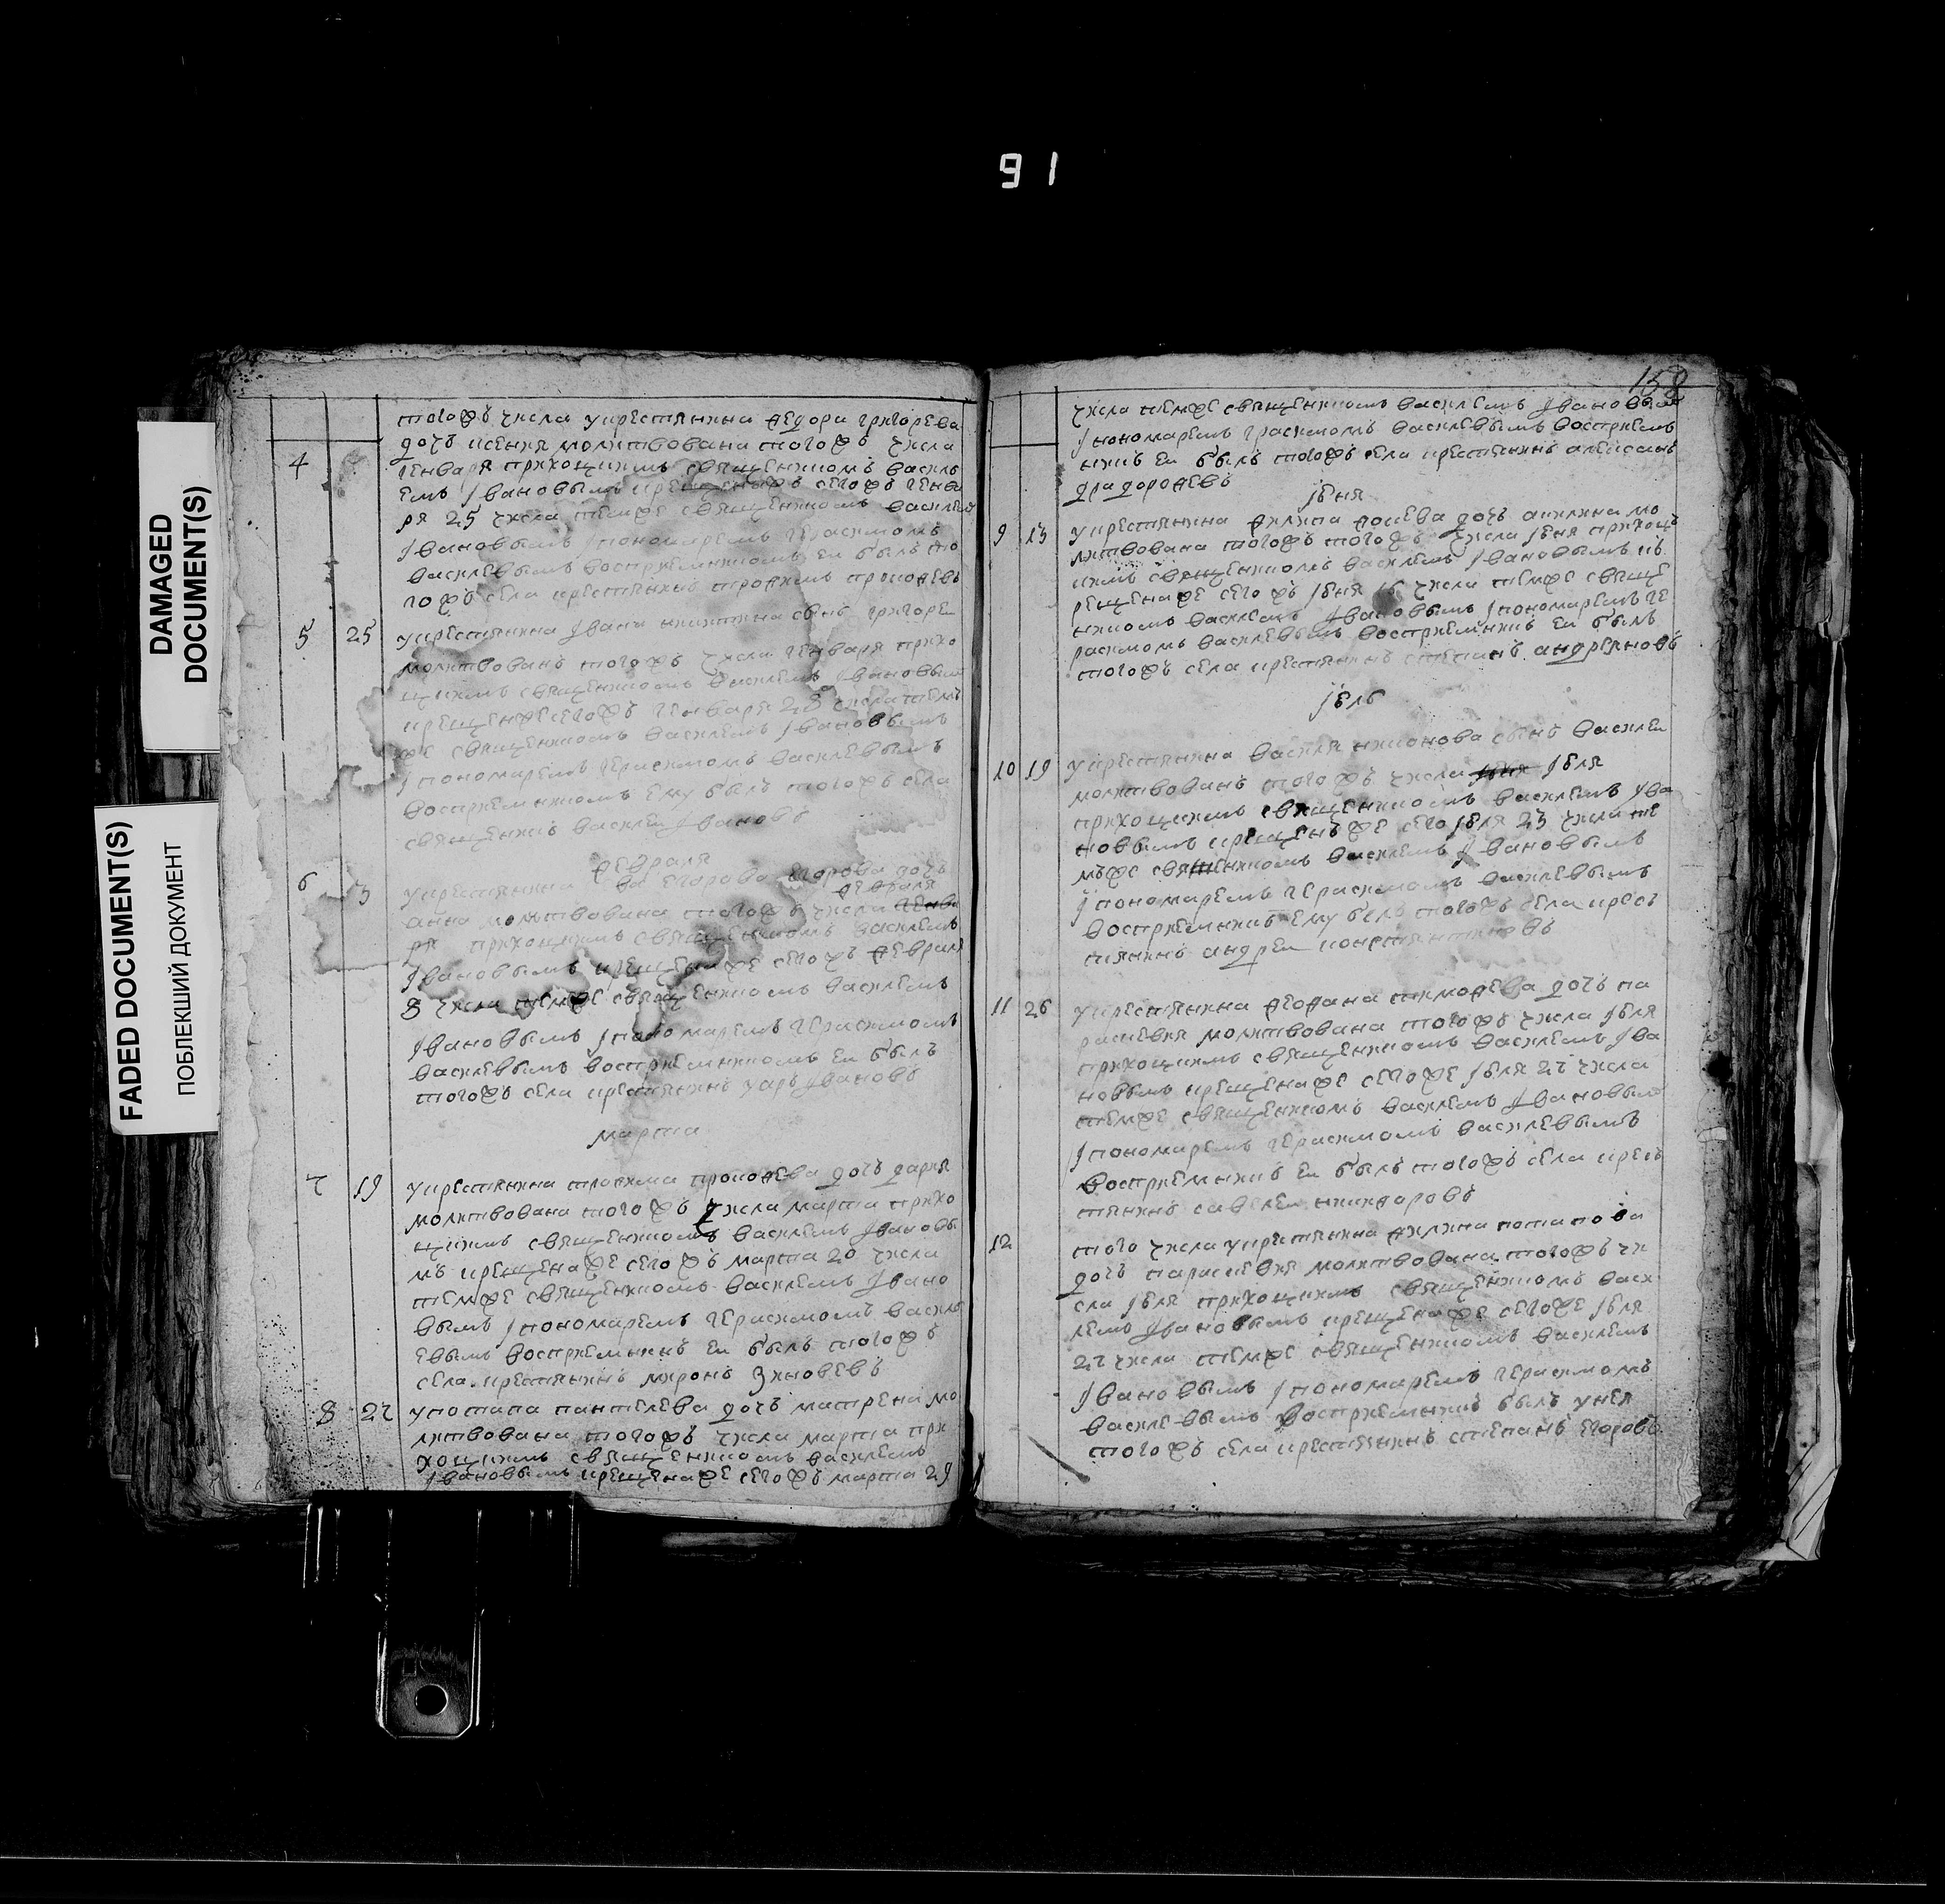 91
DAMAGED
DOCUMENT(S)
FADED DOCUMENT(S)
ПОБЛЕКШИЙ ДОКУМЕНТ
тогожъ числа укрестьянина Федора григорева
4 дочь ксения молитвована тогожъ числа
генваря приходцкимъ священникомъ василь
емъ Iвановымъ сегожъ генва
ря 25 числа темже священникомъ василем
Iвановымъ Iпономаремъ герасимомъ
василевымъ восприемникомъ еи былъ то
гожъ села крестьянинъ трофимъ прокофевъ
5 25 укрестьянина Iвана никитина сынъ григореи
молитвованъ тогожъ числа генваря прихо
цкимъ священникомъ василемъ Iвановым
крещенже сегожъ генваря 28 числа темъ
же священникомъ василемъ Iвановымъ
Iпономаремъ герасимомъ василевымъ
восприемникомъ ему былъ тогожъ села
священникъ василеи Iвановъ
февраля
6 3 укрестьянина егорова дочь
февраля
анна молитвована тогожъ числа генва
ря приходцкимъ священникомъ василемъ
Iвановымъ крещенаже сегожъ февраля
8 числа темже священникомъ василемъ
Iвановымъ Iпономаремъ герасимомъ
василевымъ восприемникомъ еи былъ
тогожъ села крестьянинъ уаръ Iвановъ
марта
7 19 укрестьянина трофима прокофева дочь дария
молитвована тогожъ числа марта прихо
цкимъ священникомъ василемъ Iвановы
мъ крещенаже сегожъ марта 20 числа
темже священникомъ василемъ Iвано
вымъ Iпономаремъ герасимомъ васил
евымъ восприемникъ еи былъ тогожъ
села крестьянинъ миронъ Зиновевъ
8 27 употапа пантелева дочь матрена мо
литвована тогожъ числа марта при
ходцкимъ священникомъ василемъ
Iвановымъ крещенаже сегожъ марта 29
158
числа темже священникомъ василемъ Iвановым
Iпономаремъ герасимомъ василевымъ восприем
никъ еи былъ тогожъ села крестьянинъ алексанъ
дра дорофевъ
Iюня
9 13 укрестьянина филипа фокева дочь акилина мо
литвована тогожъ тогожъ числа Iюня приходц
кимъ священникомъ василемъ Iвановымъ къ
рещенаже сегожъ Iюня 16 числа темже свяще
нникомъ василемъ Iвановымъ Iпономаремъ ге
расимомъ василевымъ восприемникъ еи былъ
тогожъ села крестьянинъ степанъ андреяновъ
Iюль
10 19 укрестьянина василя никонова сынъ василеи
молитвованъ тогожъ числа Iюня Iюля
приходцкимъ священникомъ василемъ Iва
новымъ крещенъже сего Iюля 23 числа те
мъже священникомъ василемъ Iвановымъ
Iпономаремъ герасимомъ василевымъ
восприемникъ ему былъ тогожъ села крес
тьянинъ андреи константиновъ
11 26 укрестьянина феофана тимофева дочь па
раскевия молитвована тогожъ числа Iюля
приходцкимъ священникомъ василемъ Iва
новымъ крещенаже сегоже Iюля 27 числа
темже священникомъ василемъ Iвановым
Iпономаремъ герасимомъ василевымъ
восприемникъ еи былъ тогожъ села крес
тьянинъ савелеи никифоровъ
12 того числа укрестьянина филипа потапова
дочь параскевия молитвована тогожъ чи
сла Iюля приходцкимъ священникомъ васи
лемъ Iвановымъ крещенаже сегоже Iюля
27 числа темже священникомъ василемъ
Iвановымъ Iпономаремъ герасимомъ
василевымъ восприемникъ былъ унея
тогожъ села крестьянинъ степанъ егоровъ